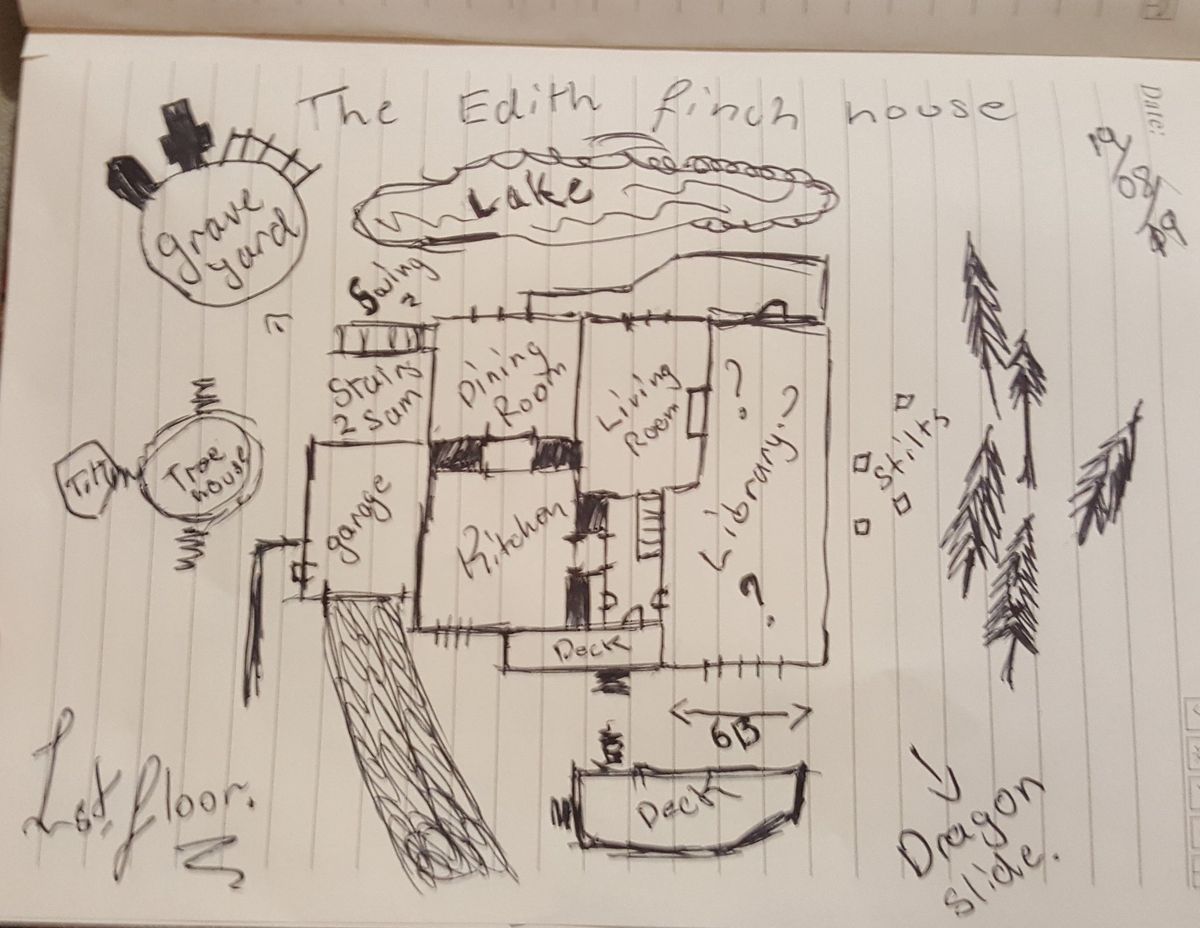 The Edith finch house
Date:
19/08/19
grave
yard
Lake
Swing
2
Stairs
2 Sam
Dining
Room
Living
Room
? Library. ?
?
Tree
house
garage
Kitchen
Stilts
Deck
6B
Deck
1st. floor.
Dragon
slide.